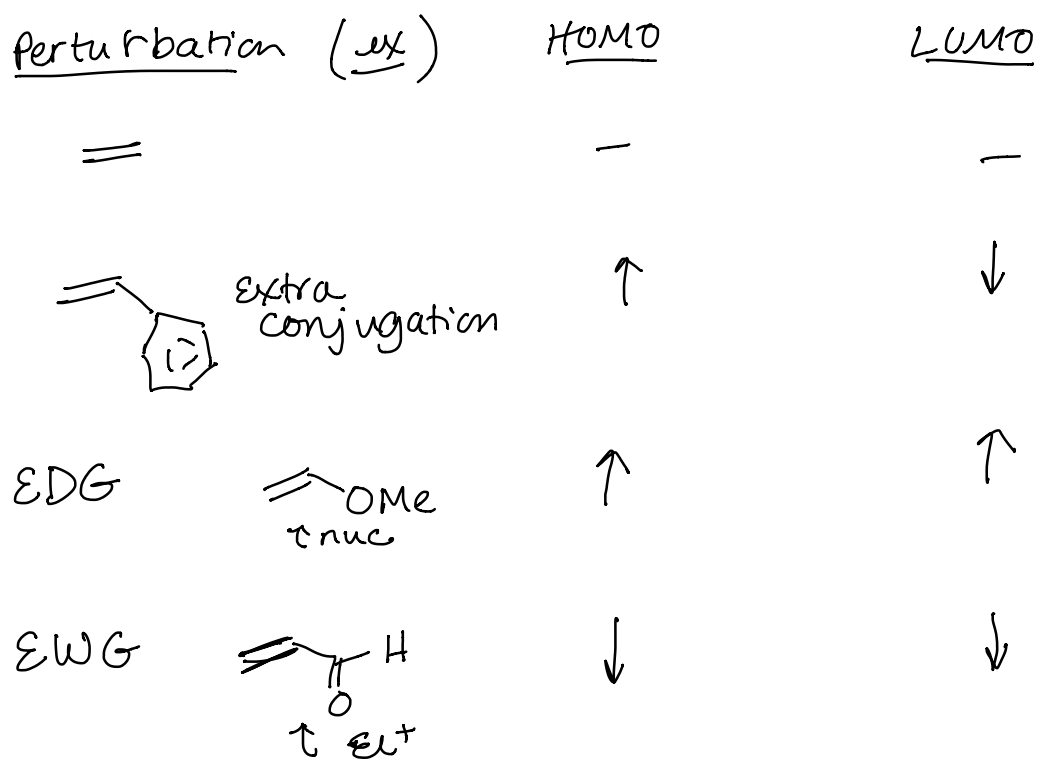 Perturbation (ex) HOMO LUMO
— —
extra
conjugation ↑ ↓
EDG OMe ↑ ↑
↑ nuc
EWG H ↓ ↓
O
↑ El+